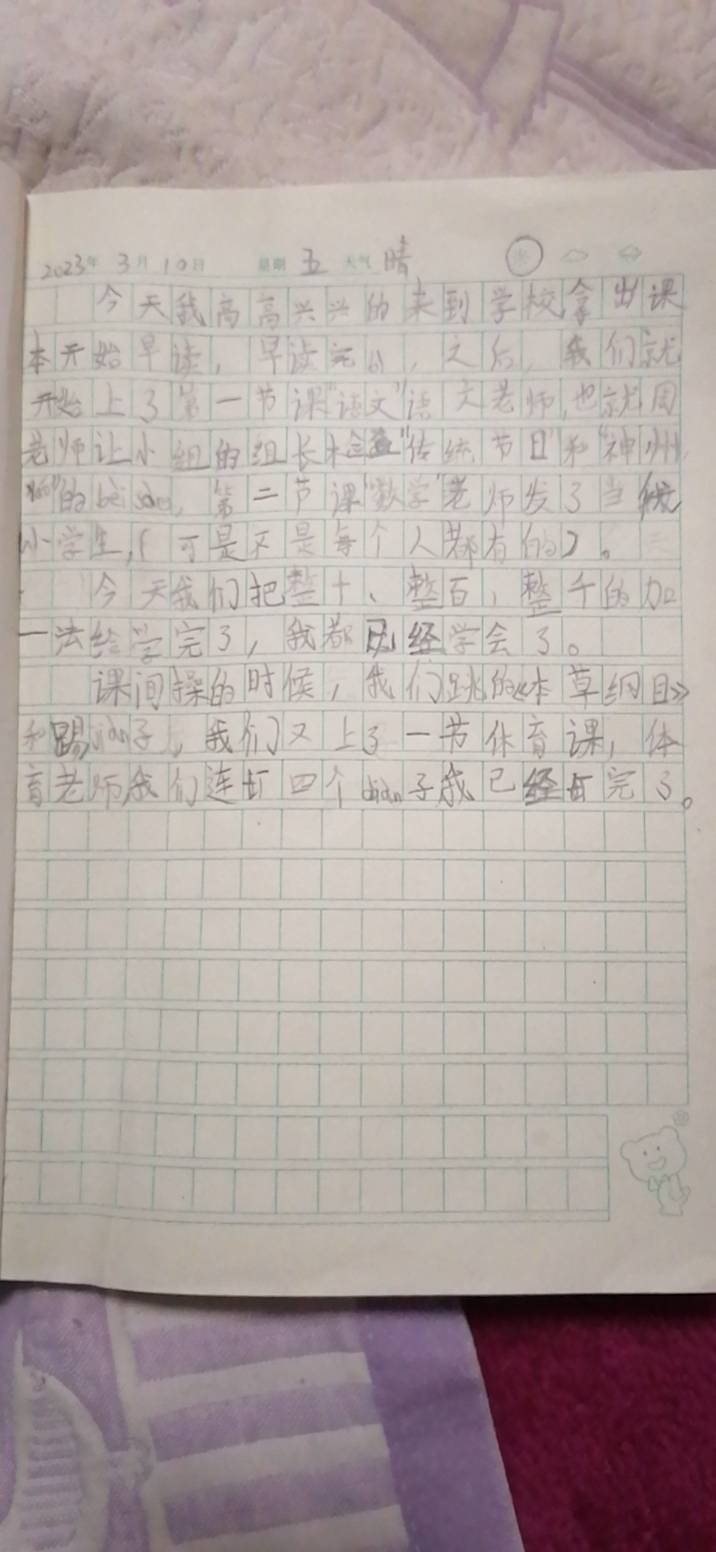 2023年 3月 10日 星期 五 天气 晴
今天我高高兴兴的来到学校拿出课
本开始早读，早读完的，之后，我们就
开始上了第一节课“语文”语文老师，也就周
老师让小组的组长检查“传统节日”和“神州
的bèi sòng，第二节课“数学”老师发了当
小学生，（可是不是每个人都有的）。
今天我们把整十、整百，整千的加
一法给学完了，我都已经学会了。
课间操的时候，我们跳的《本草纲目》
和踢jiàn子，我们又上了一节体育课，体
育老师我们连 四个diàn子我已经 完了。